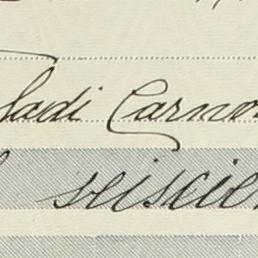 Sadi Carno
seiscien